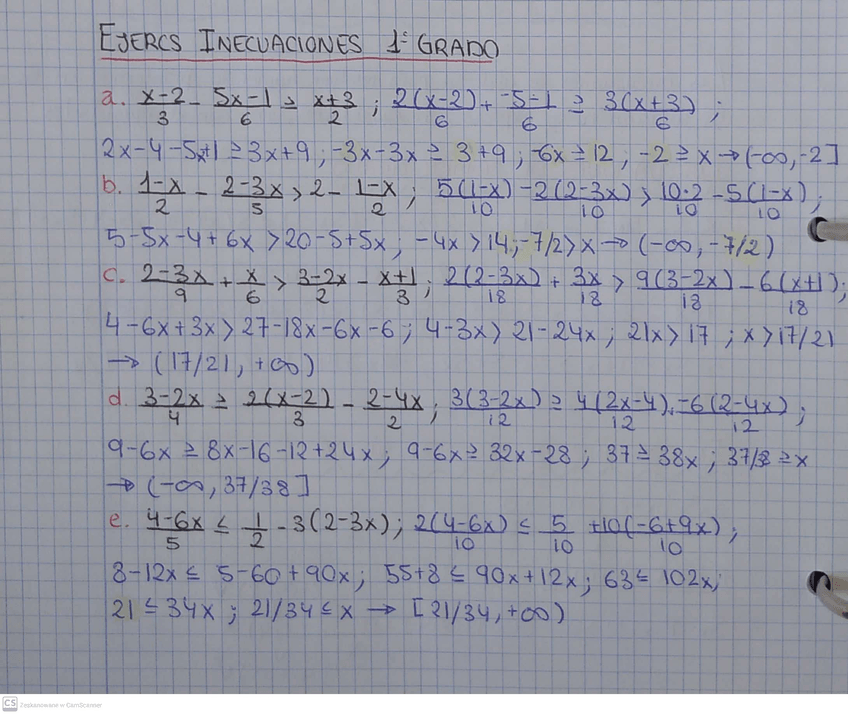 EJERCS INECUACIONES 1º GRADO
a. (x-2)/3 - (5x-1)/6 ≥ (x+3)/2 ; 2(x-2)/6 + (-5-1)/6 ≥ 3(x+3)/6 ;
2x-4-5x+1 ≥ 3x+9 ; -3x-3x ≥ 3+9 ; -6x ≥ 12 ; -2 ≥ x → (-∞, -2]
b. (1-x)/2 - (2-3x)/5 > 2 - (1-x)/2 ; 5(1-x)/10 - 2(2-3x)/10 > 10·2/10 - 5(1-x)/10 ;
5-5x-4+6x > 20-5+5x ; -4x > 14 ; -7/2 > x → (-∞, -7/2)
c. (2-3x)/9 + x/6 > (3-2x)/2 - (x+1)/3 ; 2(2-3x)/18 + 3x/18 > 9(3-2x)/18 - 6(x+1)/18 ;
4-6x+3x > 27-18x-6x-6 ; 4-3x > 21-24x ; 21x > 17 ; x > 17/21
→ (17/21, +∞)
d. (3-2x)/4 ≥ 2(x-2)/3 - (2-4x)/2 ; 3(3-2x)/12 ≥ 4(2x-4)/12 - 6(2-4x)/12 ;
9-6x ≥ 8x-16-12+24x ; 9-6x ≥ 32x-28 ; 37 ≥ 38x ; 37/38 ≥ x
→ (-∞, 37/38]
e. (4-6x)/5 ≤ 1/2 - 3(2-3x) ; 2(4-6x)/10 ≤ 5/10 + 10(-6+9x)/10 ;
8-12x ≤ 5-60+90x ; 55+8 ≤ 90x+12x ; 63 ≤ 102x ;
21 ≤ 34x ; 21/34 ≤ x → [21/34, +∞)
CS Zeskanowane w CamScanner